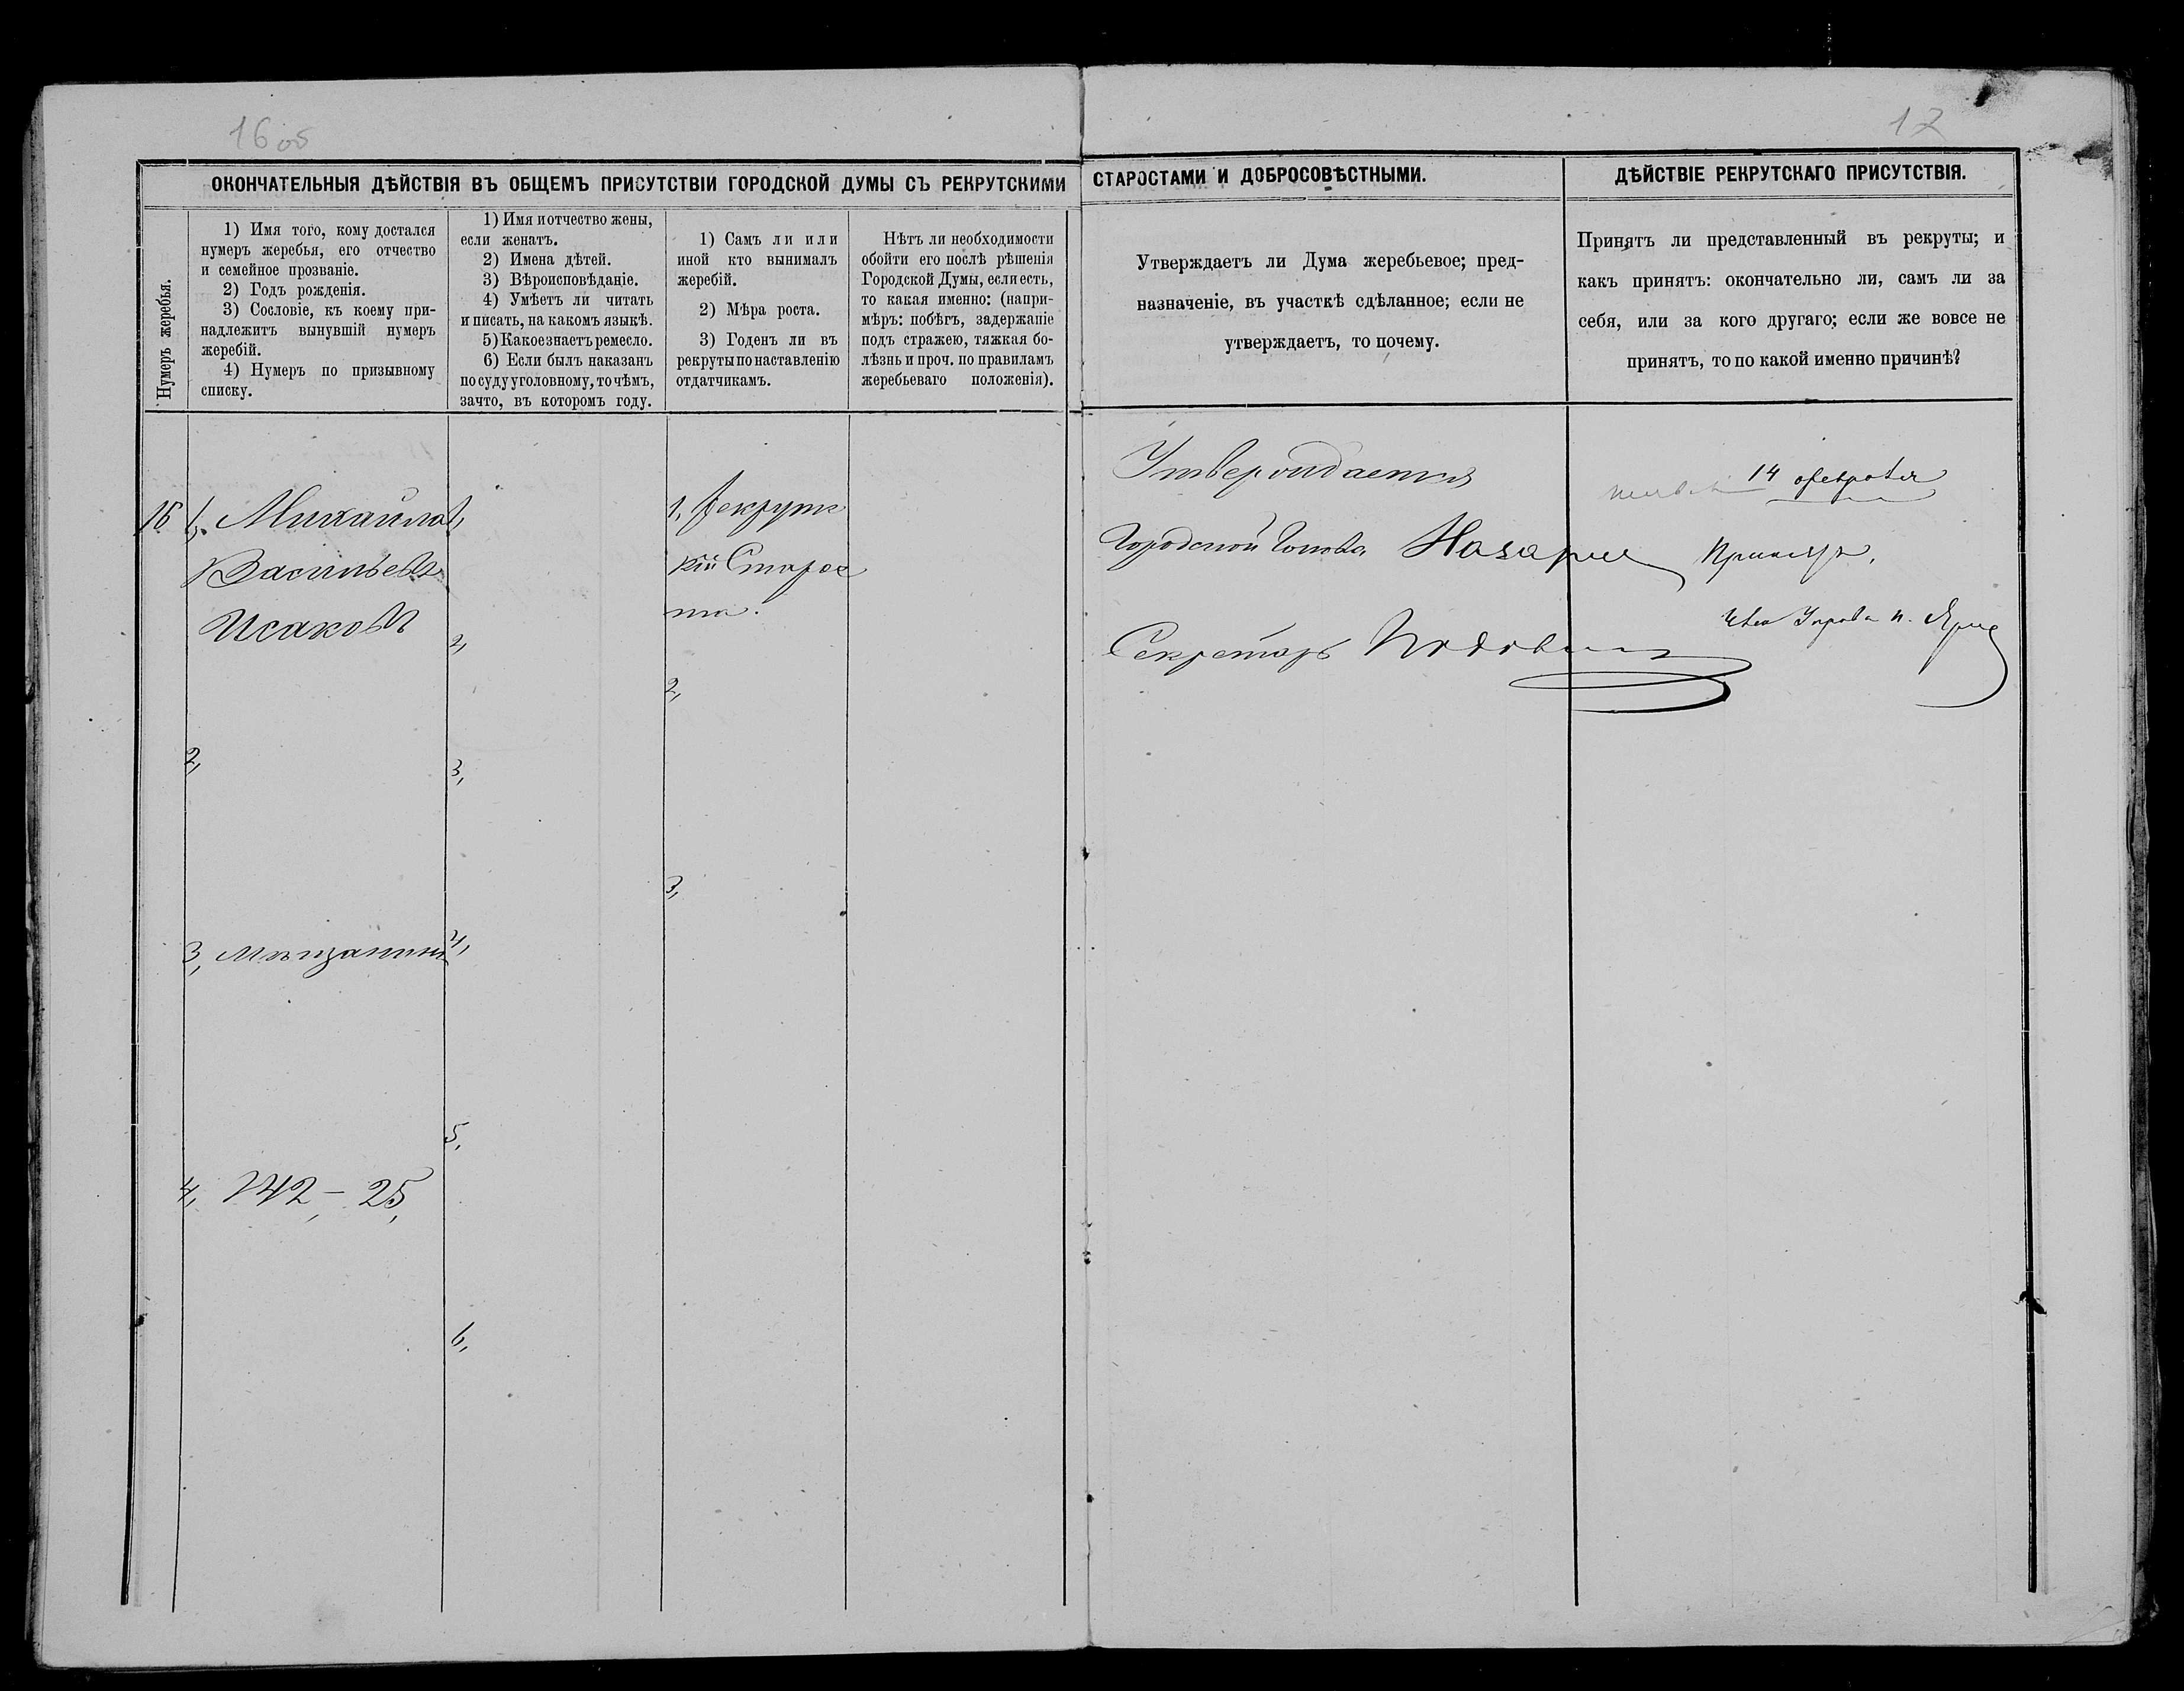 16 об
17
ОКОНЧАТЕЛЬНЫЯ ДѢЙСТВІЯ ВЪ ОБЩЕМЪ ПРИСУТСТВІИ ГОРОДСКОЙ ДУМЫ СЪ РЕКРУТСКИМИ СТАРОСТАМИ И ДОБРОСОВѢСТНЫМИ.
ДѢЙСТВІЕ РЕКРУТСКАГО ПРИСУТСТВІЯ.
Нумеръ жеребья.
1) Имя того, кому достался
нумеръ жеребья, его отчество
и семейное прозваніе.
2) Годъ рожденія.
3) Сословіе, къ коему при-
надлежитъ вынувшій нумеръ
жеребій.
4) Нумеръ по призывному
списку.
1) Имя и отчество жены,
если женатъ.
2) Имена дѣтей.
3) Вѣроисповѣданіе.
4) Умѣетъ ли читать
и писать, на какомъ языкѣ.
5) Какое знаетъ ремесло.
6) Если былъ наказанъ
по суду уголовному, то чѣмъ,
за что, въ которомъ году.
1) Самъ ли или
иной кто вынималъ
жеребій.
2) Мѣра роста.
3) Годенъ ли въ
рекруты по наставленію
отдатчикамъ.
Нѣтъ ли необходимости
обойти его послѣ рѣшенія
Городской Думы, если есть,
то какая именно: (напри-
мѣръ: побѣгъ, задержаніе
подъ стражею, тяжкая бо-
лѣзнь и проч. по правиламъ
жеребьеваго положенія).
Утверждаетъ ли Дума жеребьевое; пред-
назначеніе, въ участкѣ сдѣланное; если не
утверждаетъ, то почему.
Принятъ ли представленный въ рекруты; и
какъ принятъ: окончательно ли, самъ ли за
себя, или за кого другаго; если же вовсе не
принятъ, то по какой именно причинѣ?
1, Михаила
Васильевъ
Исаковъ
2,
3, Мѣщанинъ
4, 142 - 25,
1,
2,
3,
4,
5,
6,
1, Рекрутс
кій Старос
та.
2,
3,
Утверждается
Городской Голова
Секретарь
14 февраля
Принятъ.